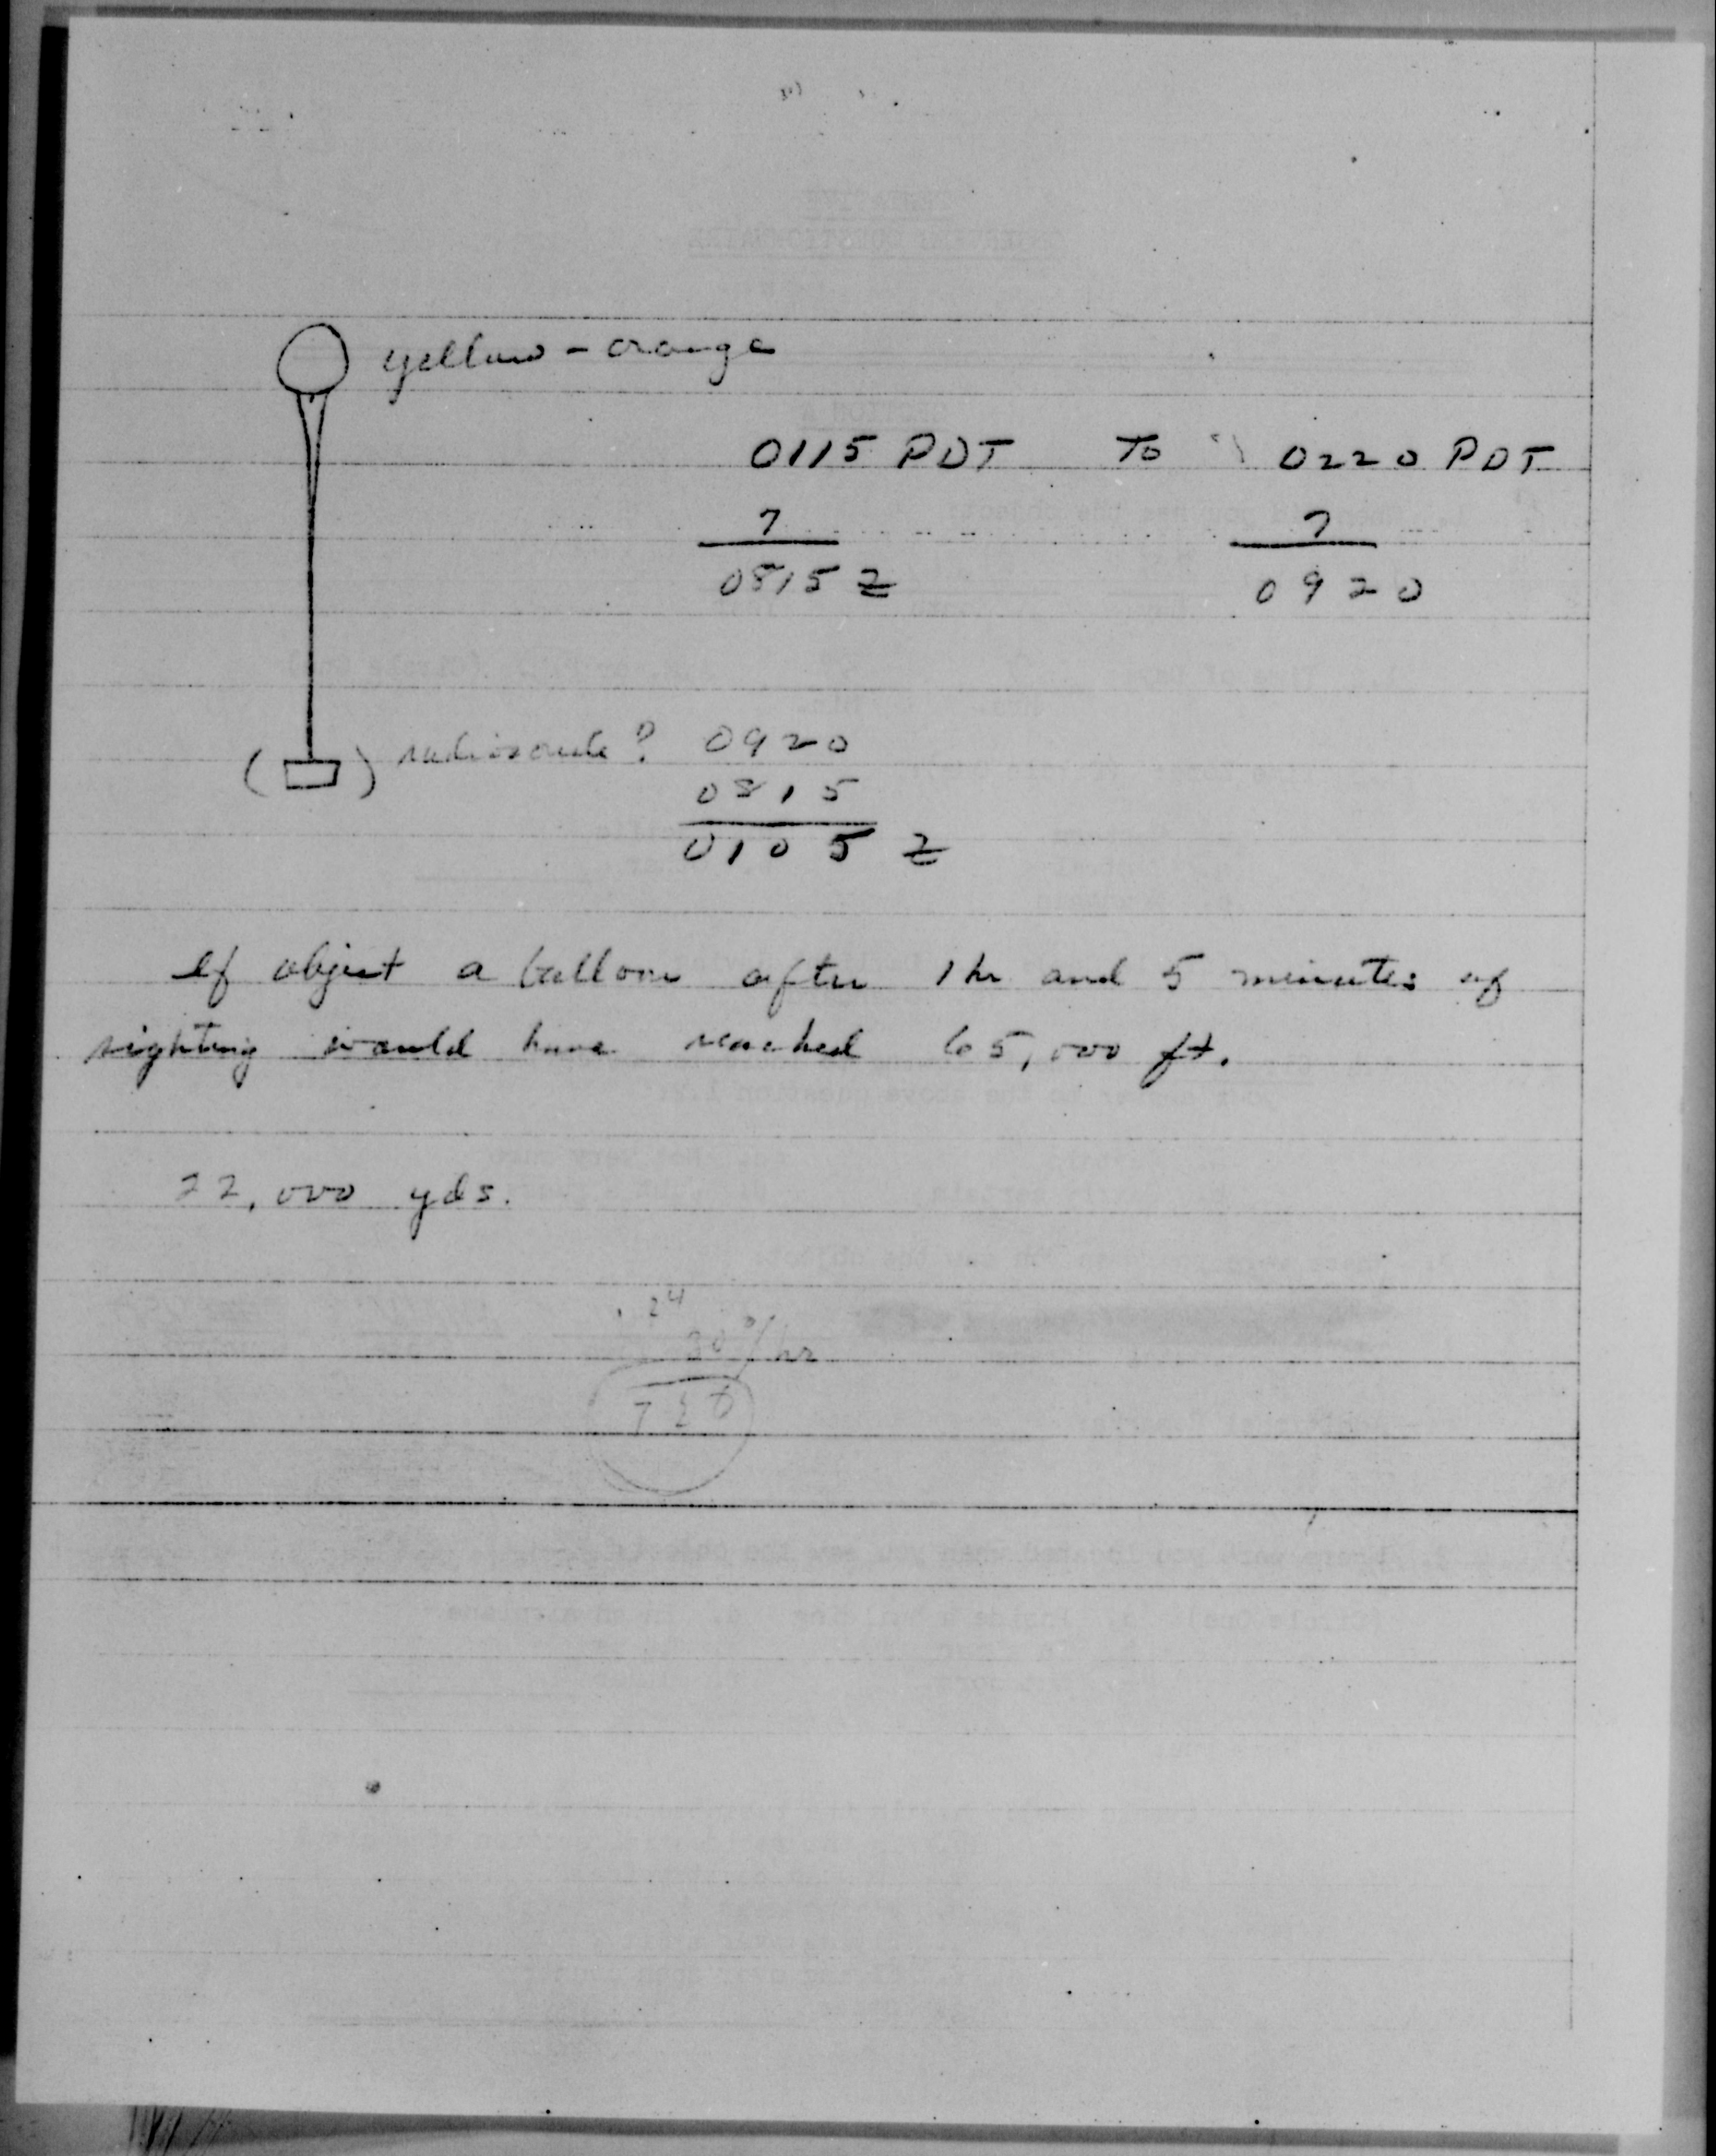 yellow - orange
0115 PDT To 0220 PDT
7 7
0815 Z 0920
( ) radiosonde? 0920
0815
0105 Z
If object a balloon after 1 hr and 5 minutes of
sighting would have reached 65,000 ft.
22,000 yds.
24
30°/hr
720